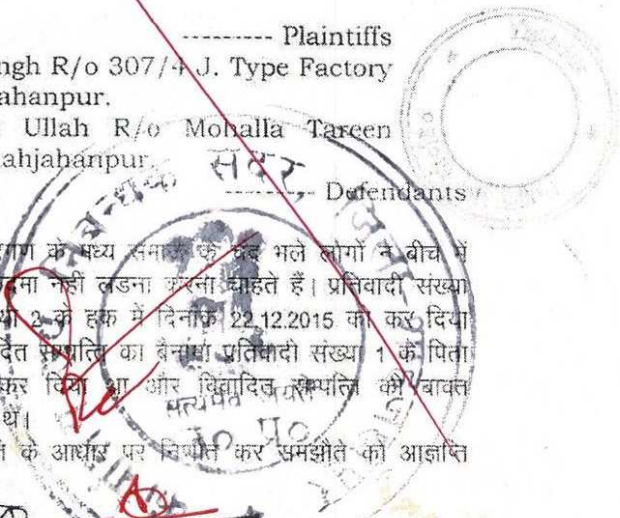 ---------- Plaintiffs
ngh R/o 307/4 J. Type Factory
ahanpur.
Ullah R/o Mohalla Tareen
ahjahanpur.
---------- Defendants
के मध्य समाज के चंद भले लोगों ने बीच में
नहीं लडना करना चाहते हैं। प्रतिवादी संख्या
2 के हक में दिनांक 22.12.2015 को कर दिया
सम्पत्ति का बैनामा प्रतिवादी संख्या 1 के पिता
कर दिया था और विवादित सम्पत्ति की बावत
थे।
के आधार पर निर्णीत कर समझौते को आज्ञप्ति
निबन्धक सदर, जिला
सत्यमेव जयते
उ० प्र०